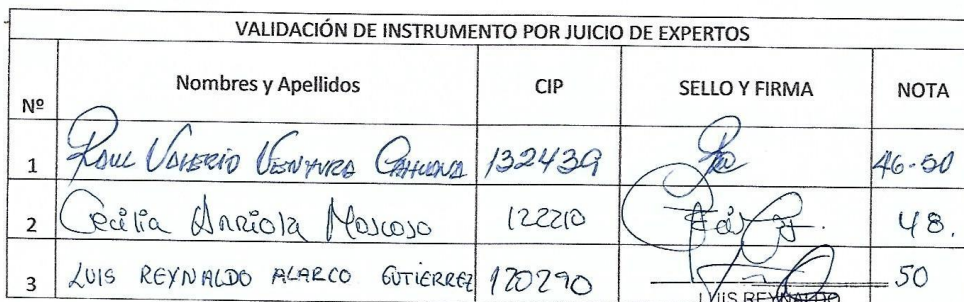 VALIDACIÓN DE INSTRUMENTO POR JUICIO DE EXPERTOS
Nº Nombres y Apellidos CIP SELLO Y FIRMA NOTA
1 Raul Valerio Ventura Cahuana 132439 46-50
2 Cecilia Arriola Moscoso 122210 48.
3 LUIS REYNALDO ALARCO GUTIERREZ 120290 50
LUIS REYNALDO